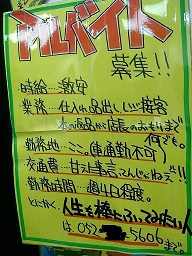 アルバイト
募集!!
時給…激安
業務…仕入れ品出しレジ接客
本の商品から店長のおもりまで
何でも。
勤務地…ここ。(車通勤不可)
交通費…甘ったれ事言ってんじゃねえ!
勤務時間…週4日程度。
とにかく、人生を棒にふってみたい人
は 052 5606まで。